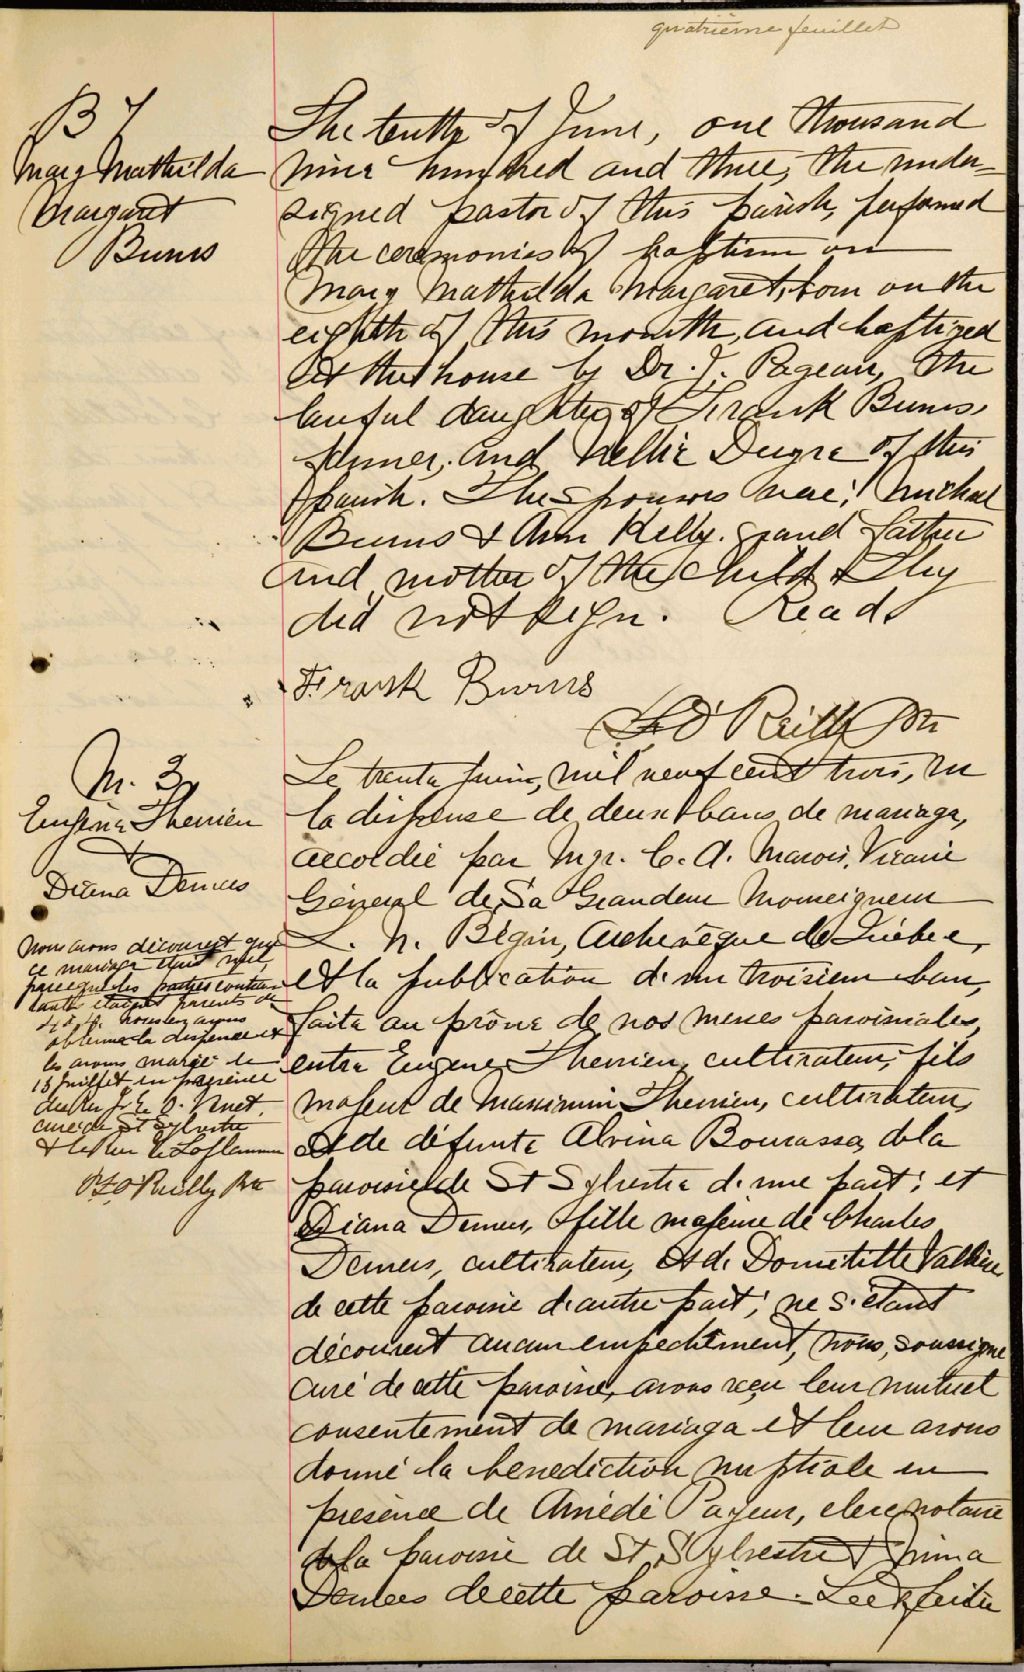 quatrième feuillet
B 7
Mary Mathilda
Margaret
Burns
The tenth of June, one thousand
nine hundred and three, the under-
signed pastor of this parish, performed
the ceremonies of baptism on
Mary Mathilda Margaret, born on the
eighth of this month, and baptized
at the house by Dr. J. Pageau, the
lawful daughter of Frank Burns,
farmer, and Nellie Dugre of this
parish. The sponsors were: Michael
Burns & Ann Kelly. grand father
and mother of the child & They
did not sign. Read.
Frank Burns
O'Reilly Ptr
M. 3
Eugène Therrien
&
Diana Demers
Nous avons découvert que
ce mariage était nul,
parceque les parties contrac
tantes étaient parents du
4 à 4. nous en avons
obtenu la dispense et
les avons marié le
13 Juillet en présence
du Rev J. E. O. Vnet,
curé de St Sylvestre
& le Rev Laflamme
O'Reilly Ptr
Le trente juin, mil neuf cent trois, vu
la dispense de deux bans de mariage,
accordée par Mgr. C. A. Marois, Vicaire
Général de Sa Grandeur Monseigneur
L. N. Bégin, Archevêque de Québec,
et la publication d'un troisième ban,
faite au prône de nos messes paroissiales,
entre Eugene Therrien, cultivateur, fils
majeur de Maximin Therrien, cultivateur,
et de défunte Alvina Bourassa, de la
paroisse de St Sylvestre d'une part; et
Diana Demers, fille majeure de Charles
Demers, cultivateur, et de Domitille Vallière
de cette paroisse d'autre part; ne s'étant
découvert aucun empechement, nous, soussigné
curé de cette paroisse, avons reçu leur mutuel
consentement de mariage et leur avons
donné la benediction nuptiale en
présence de Amédé Payeur, clerc notaire
de la paroisse de St Sylvestre &
Demers de cette paroisse. Lecture faite